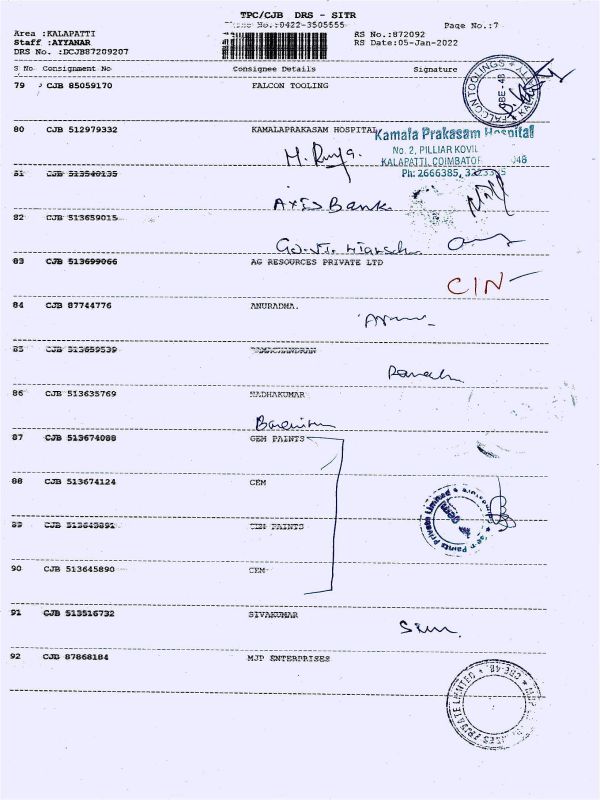 TPC/CJB DRS - SITR
Phone No.:0422-3505555 Page No.:7
Area :KALAPATTI RS No.:872092
Staff :AYYANAR RS Date:05-Jan-2022
DRS No. :DCJB87209207
S No Consignment No Consignee Details Signature
79 CJB 85059170 FALCON TOOLING
FALCON TOOLINGS
CBE-48
80 CJB 512979332 KAMALAPRAKASAM HOSPITAL
Kamala Prakasam Hospital
No. 2, PILLIAR KOVIL
KALAPATTI, COIMBATOR 048
Ph: 2666385,
81 CJB 513540135
Axis Bank
82 CJB 513659015
83 CJB 513699066 AG RESOURCES PRIVATE LTD
CIN
84 CJB 87744776 ANURADMA.
85 CJB 513659539 RAMACHANDRAN
86 CJB 513635769 MADHAKUMAR
87 CJB 513674088 GEM PAINTS
88 CJB 513674124 GEM
Gem Paints Private Limited
89 CJB 513643891 GEM PAINTS
90 CJB 513645890 GEM
91 CJB 513516732 SIVAKUMAR
92 CJB 87868184 MJP ENTERPRISES
PRIVATE LIMITED
CBE-48